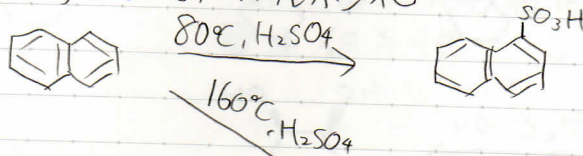 80℃, H2SO4
SO3H
160℃
, H2SO4